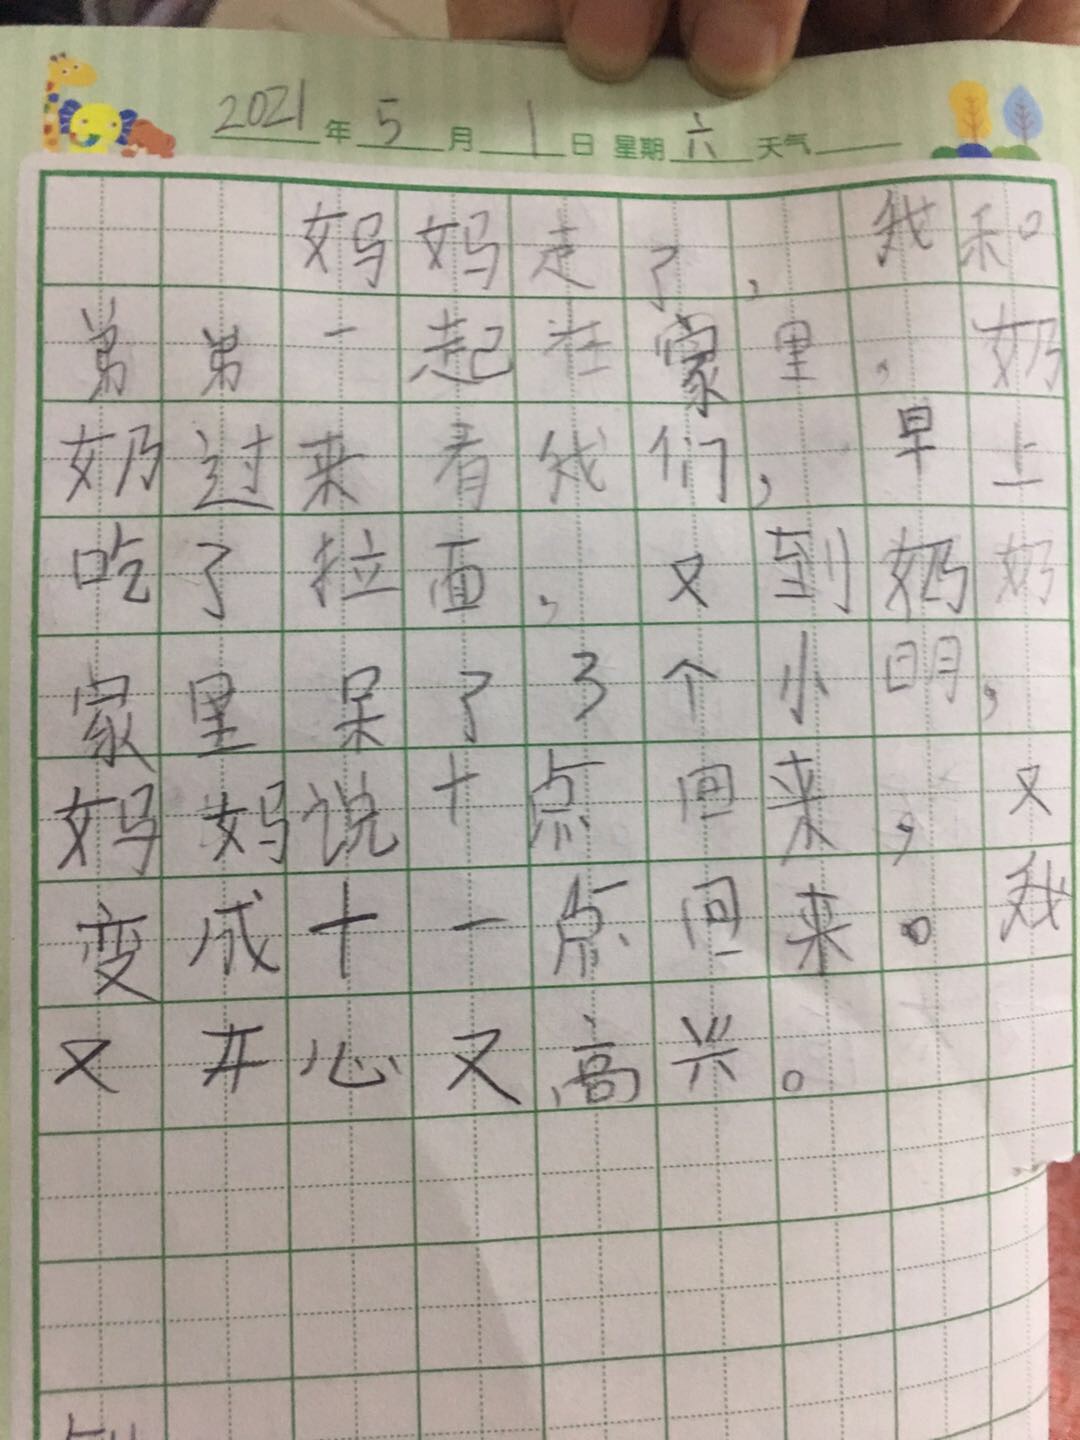 2021年5月1日 星期六 天气
妈妈走了，我和
弟弟一起在家里，奶
奶过来看我们，早上
吃了拉面，又到奶奶
家里呆了3个小明，
妈妈说十点回来，又
变成十一点回来。我
又开心又高兴。